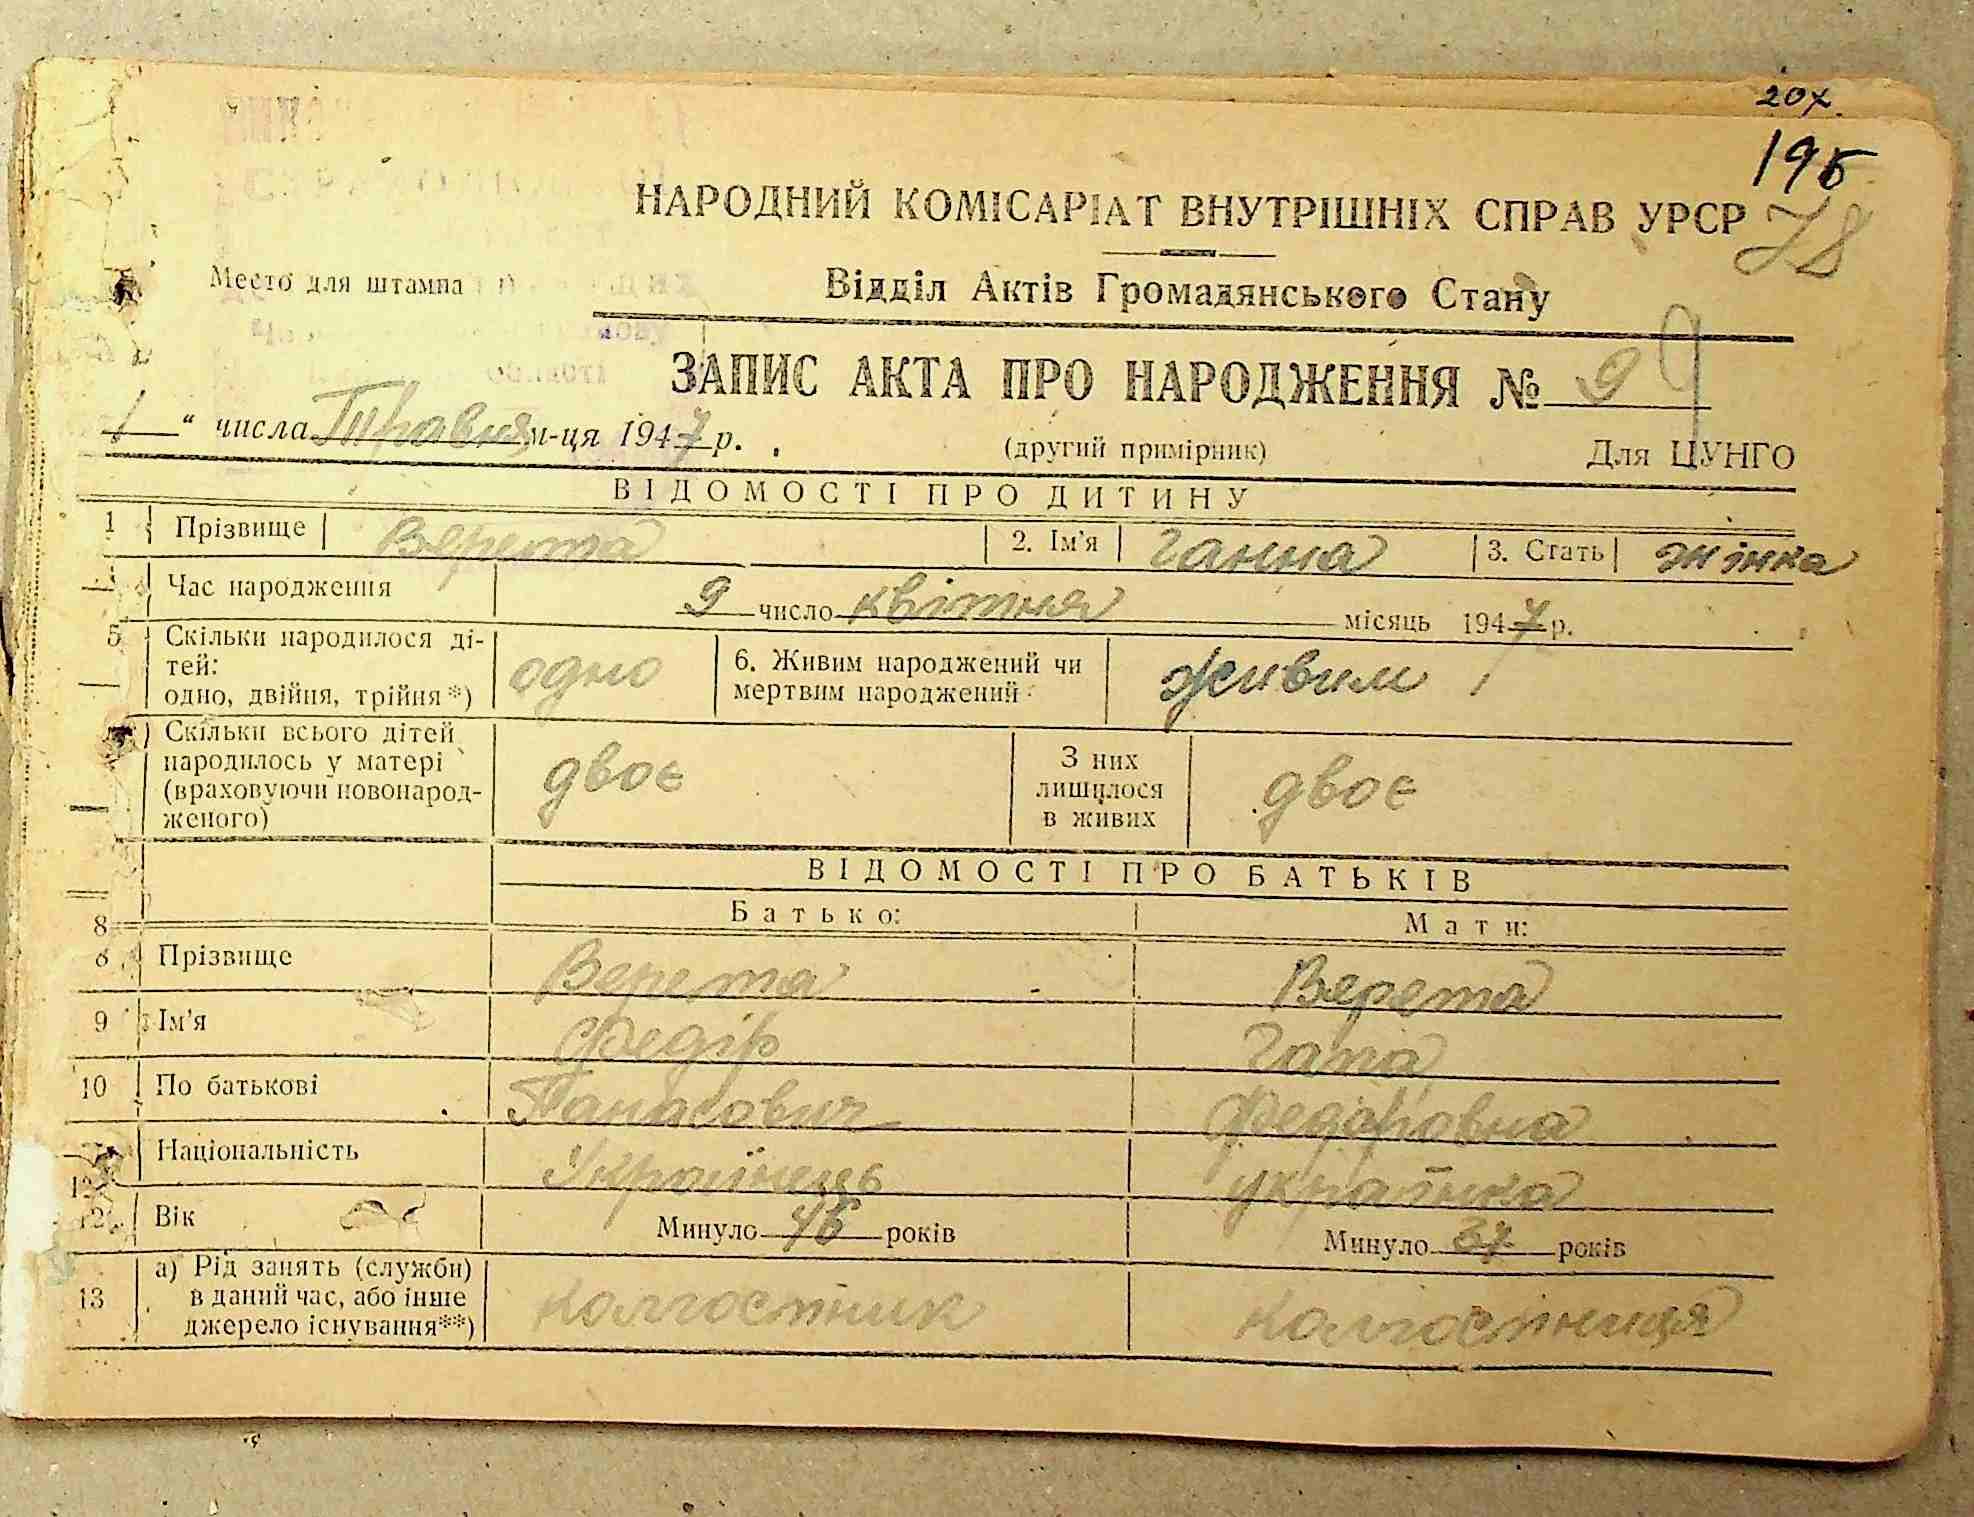 20х.
196
НАРОДНИЙ КОМІСАРІАТ ВНУТРІШНІХ СПРАВ УРСР 78
Место для штампа
Відділ Актів Громадянського Стану
ЗАПИС АКТА ПРО НАРОДЖЕННЯ № 9 9
1 " числа Травня м-ця 1947 р.
(другий примірник) Для ЦУНГО
ВІДОМОСТІ ПРО ДИТИНУ
1 Прізвище Верета 2. Ім'я Ганна 3. Стать жінка
Час народження 9 число квітня місяць 1947 р.
5 Скільки народилося ді-
тей:
одно, двійня, трійня*) одно 6. Живим народжений чи
мертвим народжений живим
Скільки всього дітей
народилось у матері
(враховуючи новонарод-
женого) двоє З них
лишилося
в живих двоє
ВІДОМОСТІ ПРО БАТЬКІВ
8 Батько: Мати:
8 Прізвище Верета Верета
9 Ім'я Федір Гапа
10 По батькові Панасович Федаровна
Національність Українець українка
12 Вік Минуло 46 років Минуло 37 років
13 а) Рід занять (служби)
в даний час, або інше
джерело існування**) колгоспник колгоспниця